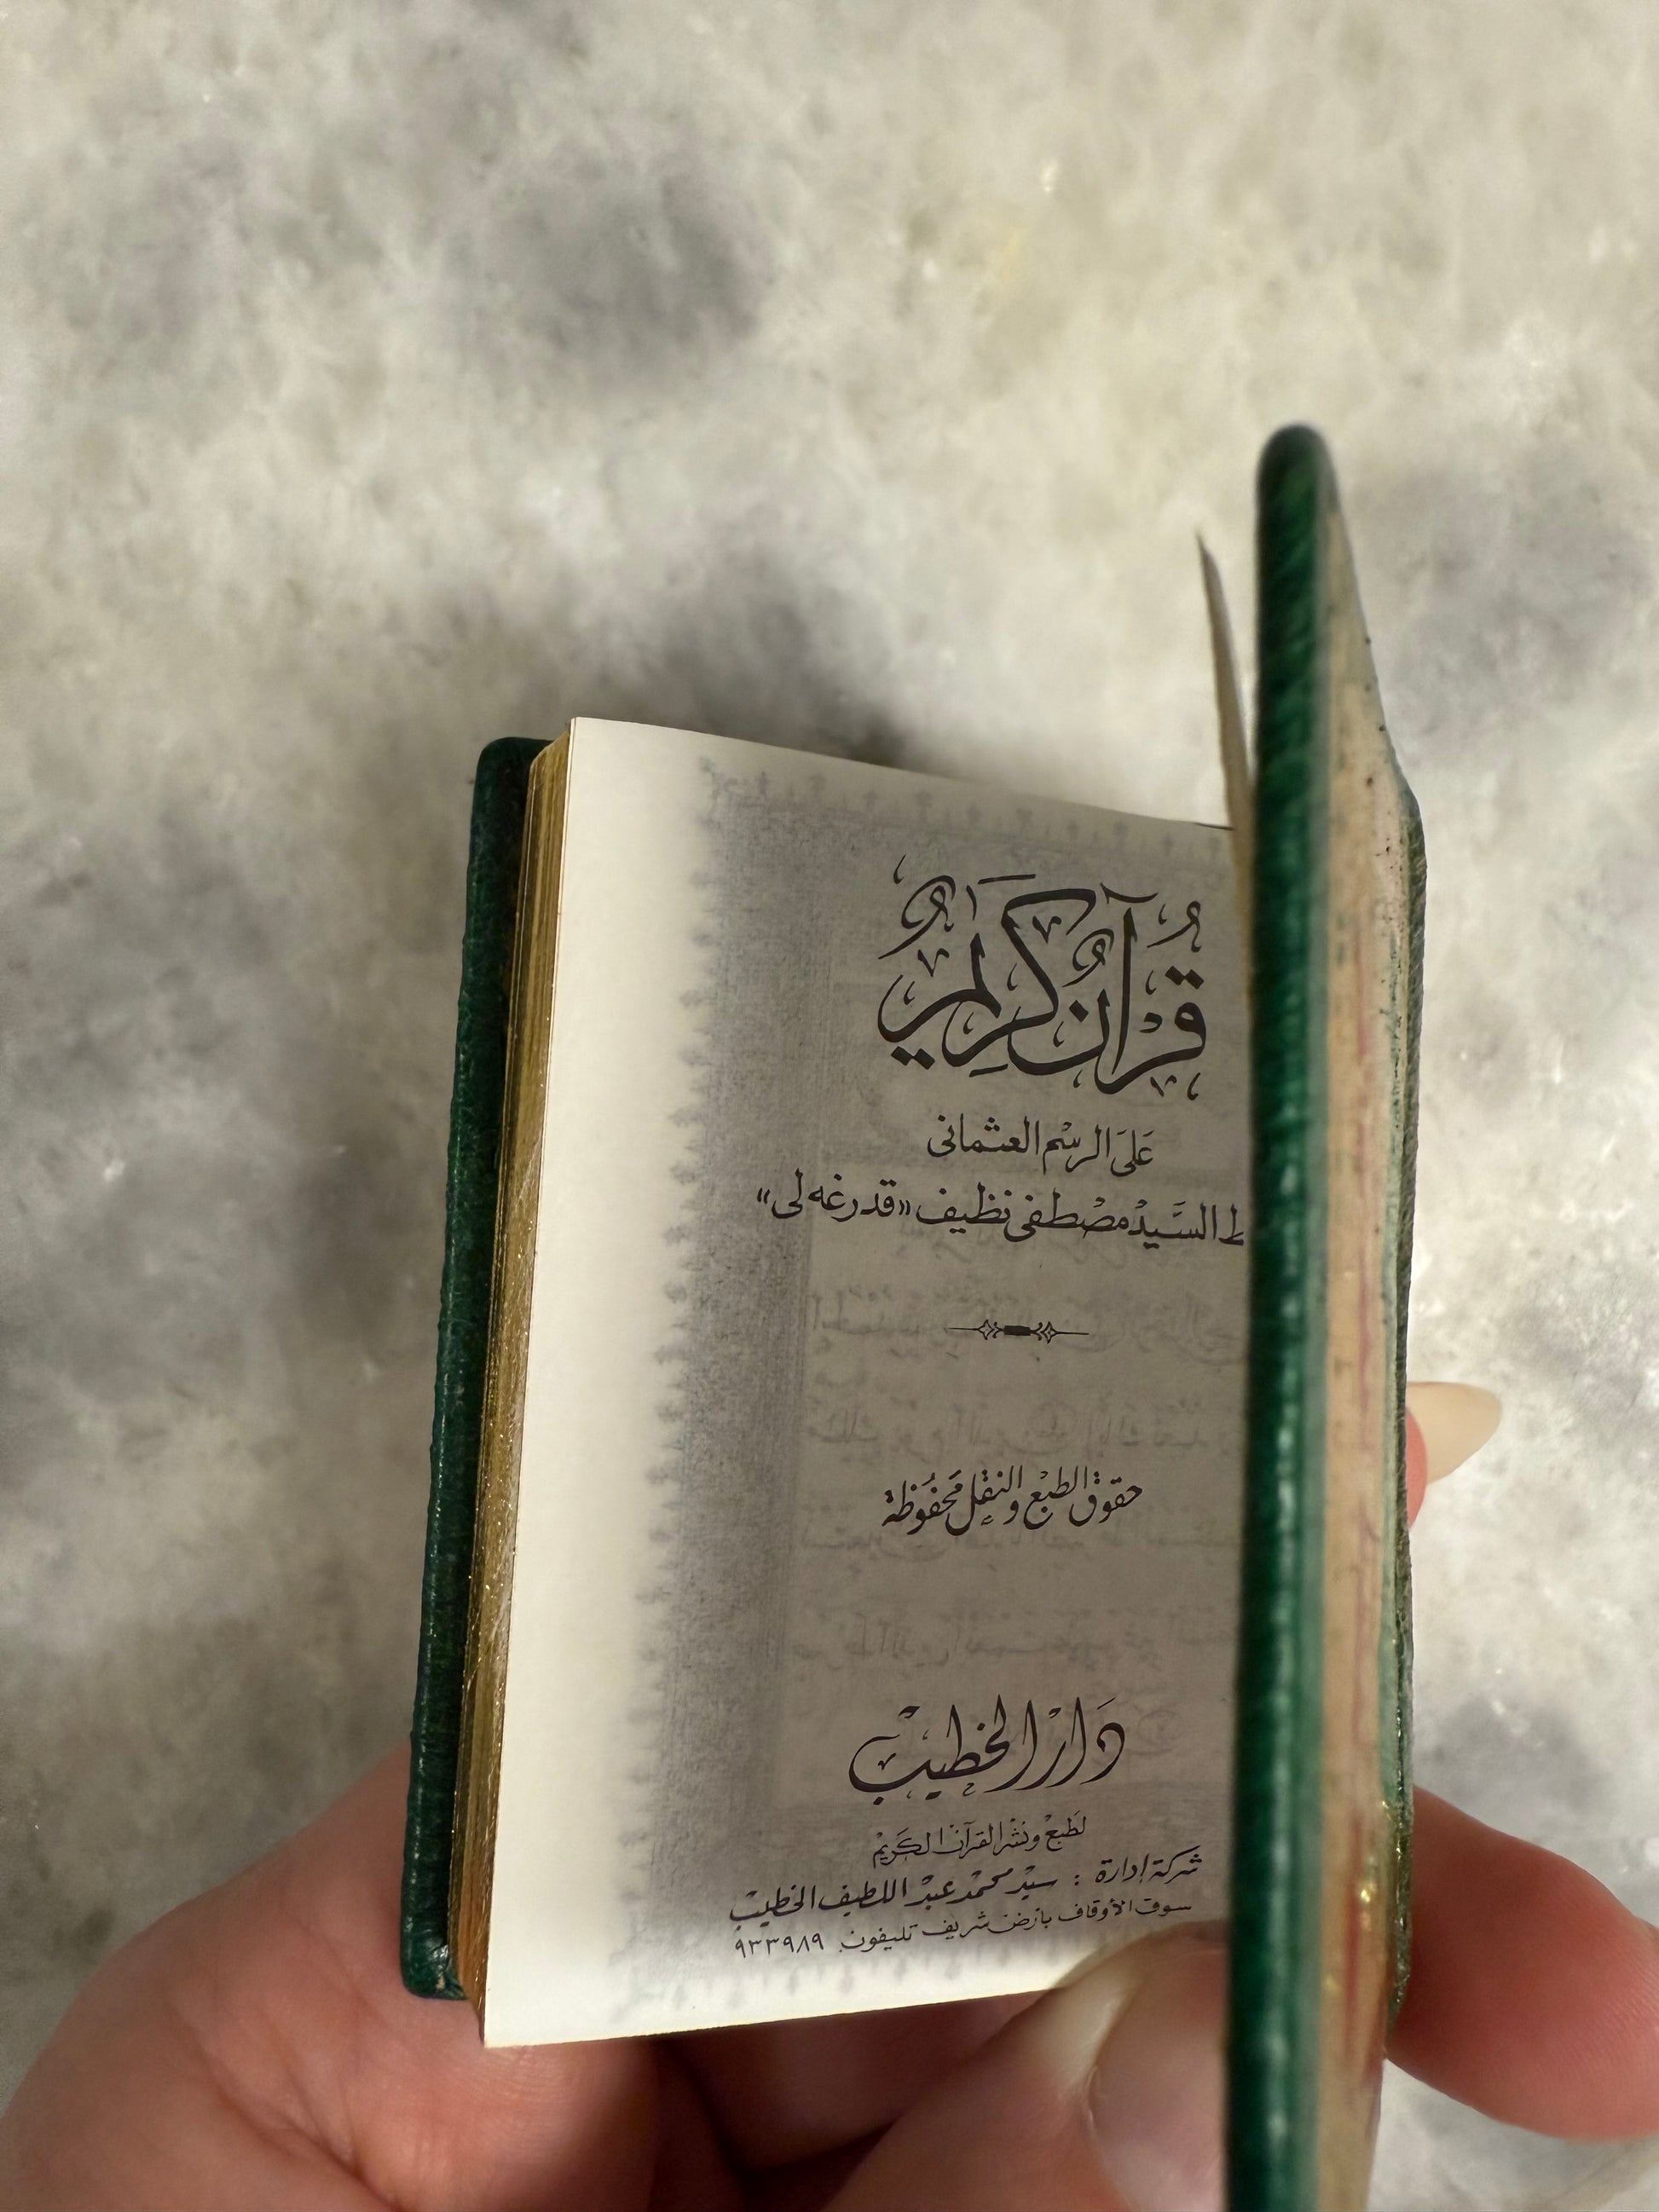 قُرْآنٌ كَرِيمٌ
عَلَى الرسْم العثمانى
السَّيِّدْ مصْطفى نظيف «قدرغه لى»
حقوق الطبْع والنقْل مَحفُوظة
دَارْ الخطيبْ
لطَبعْ ونشْر القرآنْ الكَريمْ
شركة إدارة : سيّدْ محمّدْ عبدْ اللطيف الخطيبْ
سوق الأوقاف بأرض شريف تليفون ٩٣٣٩٨٩